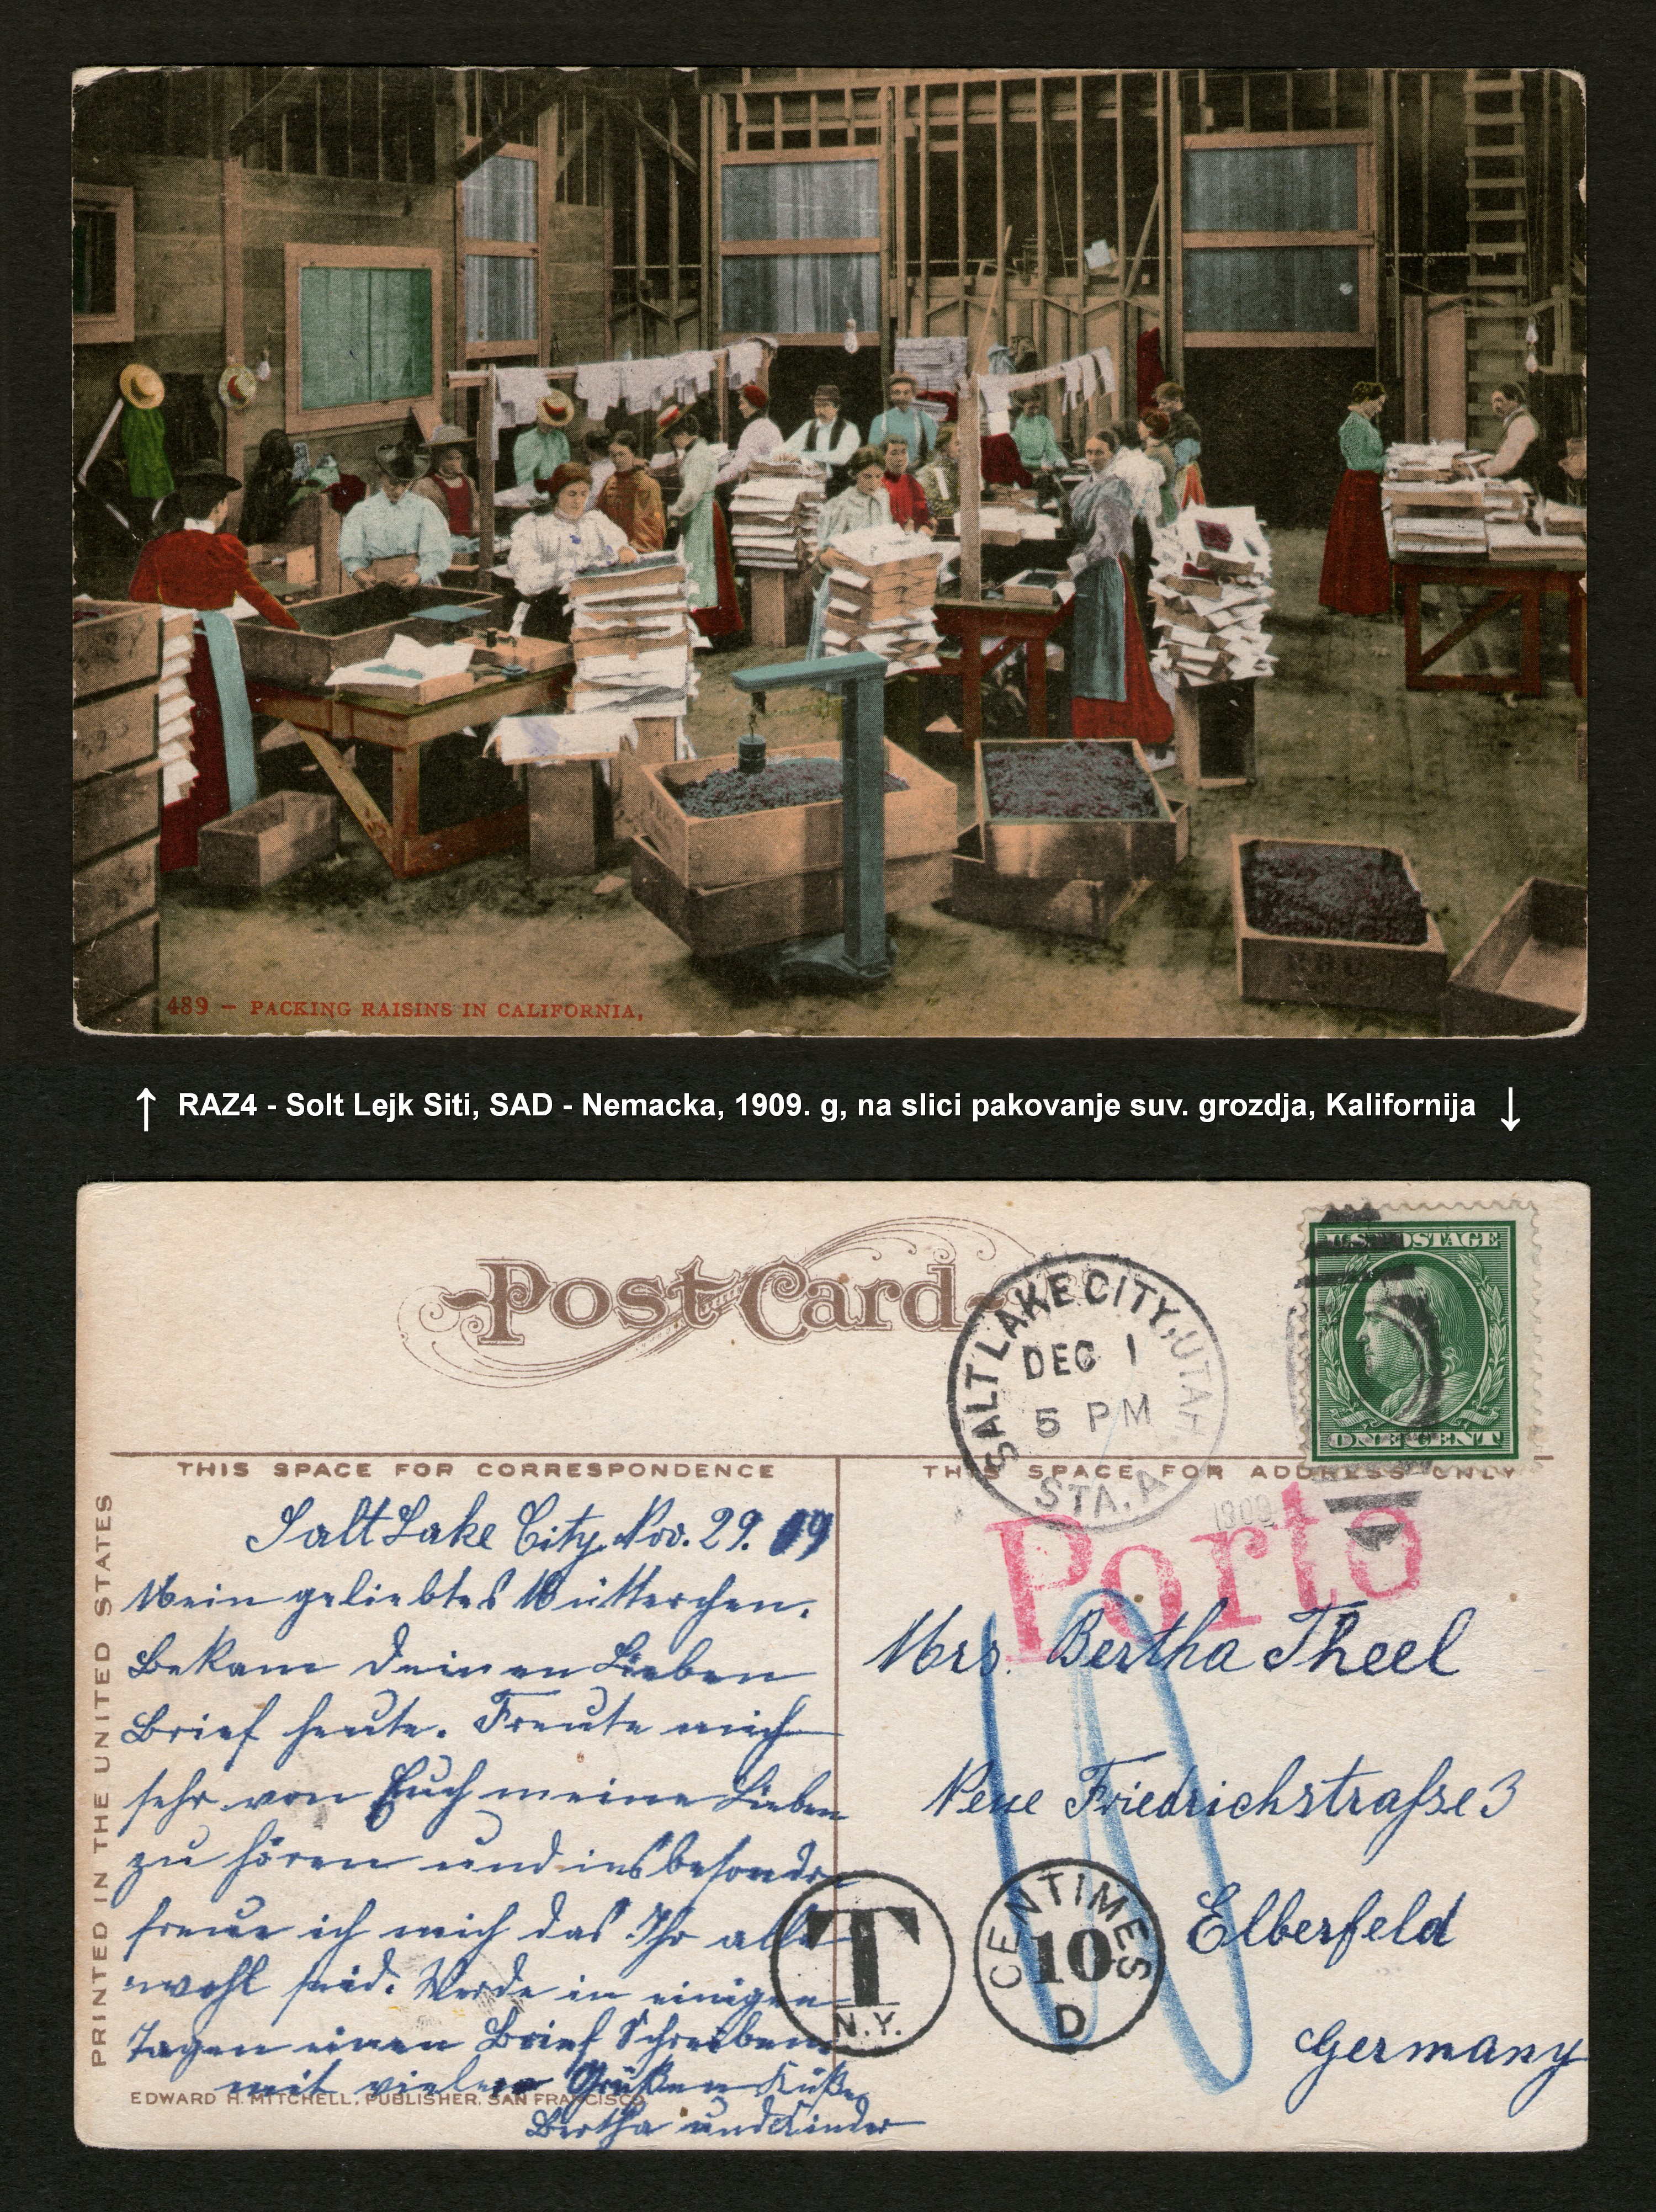 489 – PACKING RAISINS IN CALIFORNIA,
↑ RAZ4 - Solt Lejk Siti, SAD - Nemacka, 1909. g, na slici pakovanje suv. grozdja, Kalifornija ↓
Post Card
SALT LAKE CITY, UTAH
DEC 1
5 PM
STA. A
1909
U.S. POSTAGE
ONE CENT
THIS SPACE FOR CORRESPONDENCE
THIS SPACE FOR ADDRESS ONLY
PRINTED IN THE UNITED STATES
Salt Lake City, Nov. 29. 09
Mein geliebtes Mütterchen.
Bekam deinen Lieben
Brief heute. Freute mich
sehr von Euch meine Lieben
zu hören und insbesondre
freue ich mich das Ihr alle
wohl seid. Werde in einigen
Tagen einen Brief Schreiben
mit vielen Grüßen Küße
Bertha und Kinder
EDWARD H. MITCHELL, PUBLISHER, SAN FRANCISCO
Porto
Mrs. Bertha Theel
Neue Friedrichstraſse 3
Elberfeld
Germany
T
N.Y.
CENTIMES
10
D
10